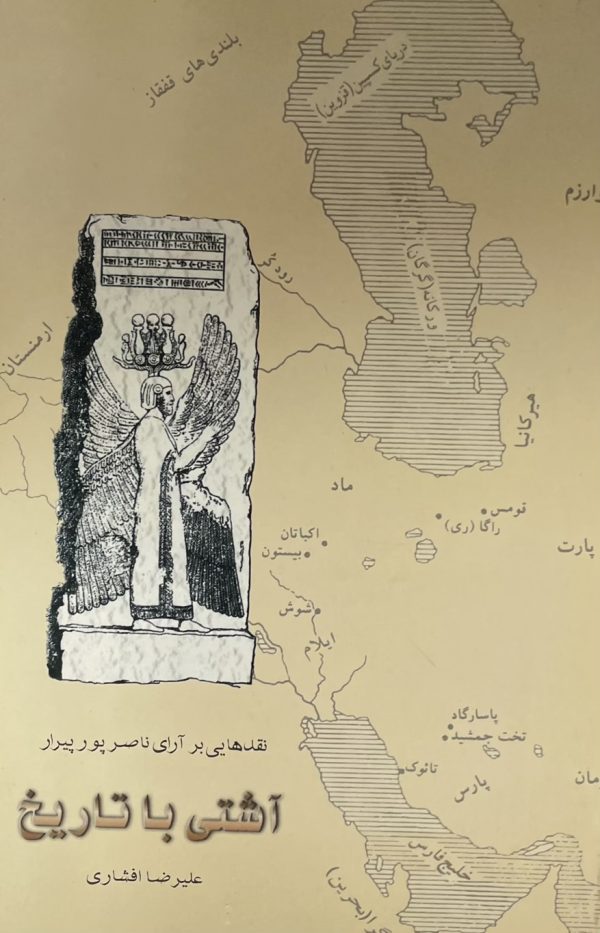 بلندی های قفقاز
دریای کسپین (قزوین)
وارزم
رود کُر
ورکانه (گرگان)
ارمنستان
هیرکانیا
ماد
قومس
راگا (ری)
پارت
اکباتان
بیستون
شوش
ایلام
پاسارگاد
تخت جمشید
تائوک
پارس
مان
خلیج فارس
(بحرین)
نقدهایی بر آرای ناصر پور پیرار
آشتی با تاریخ
علیرضا افشاری